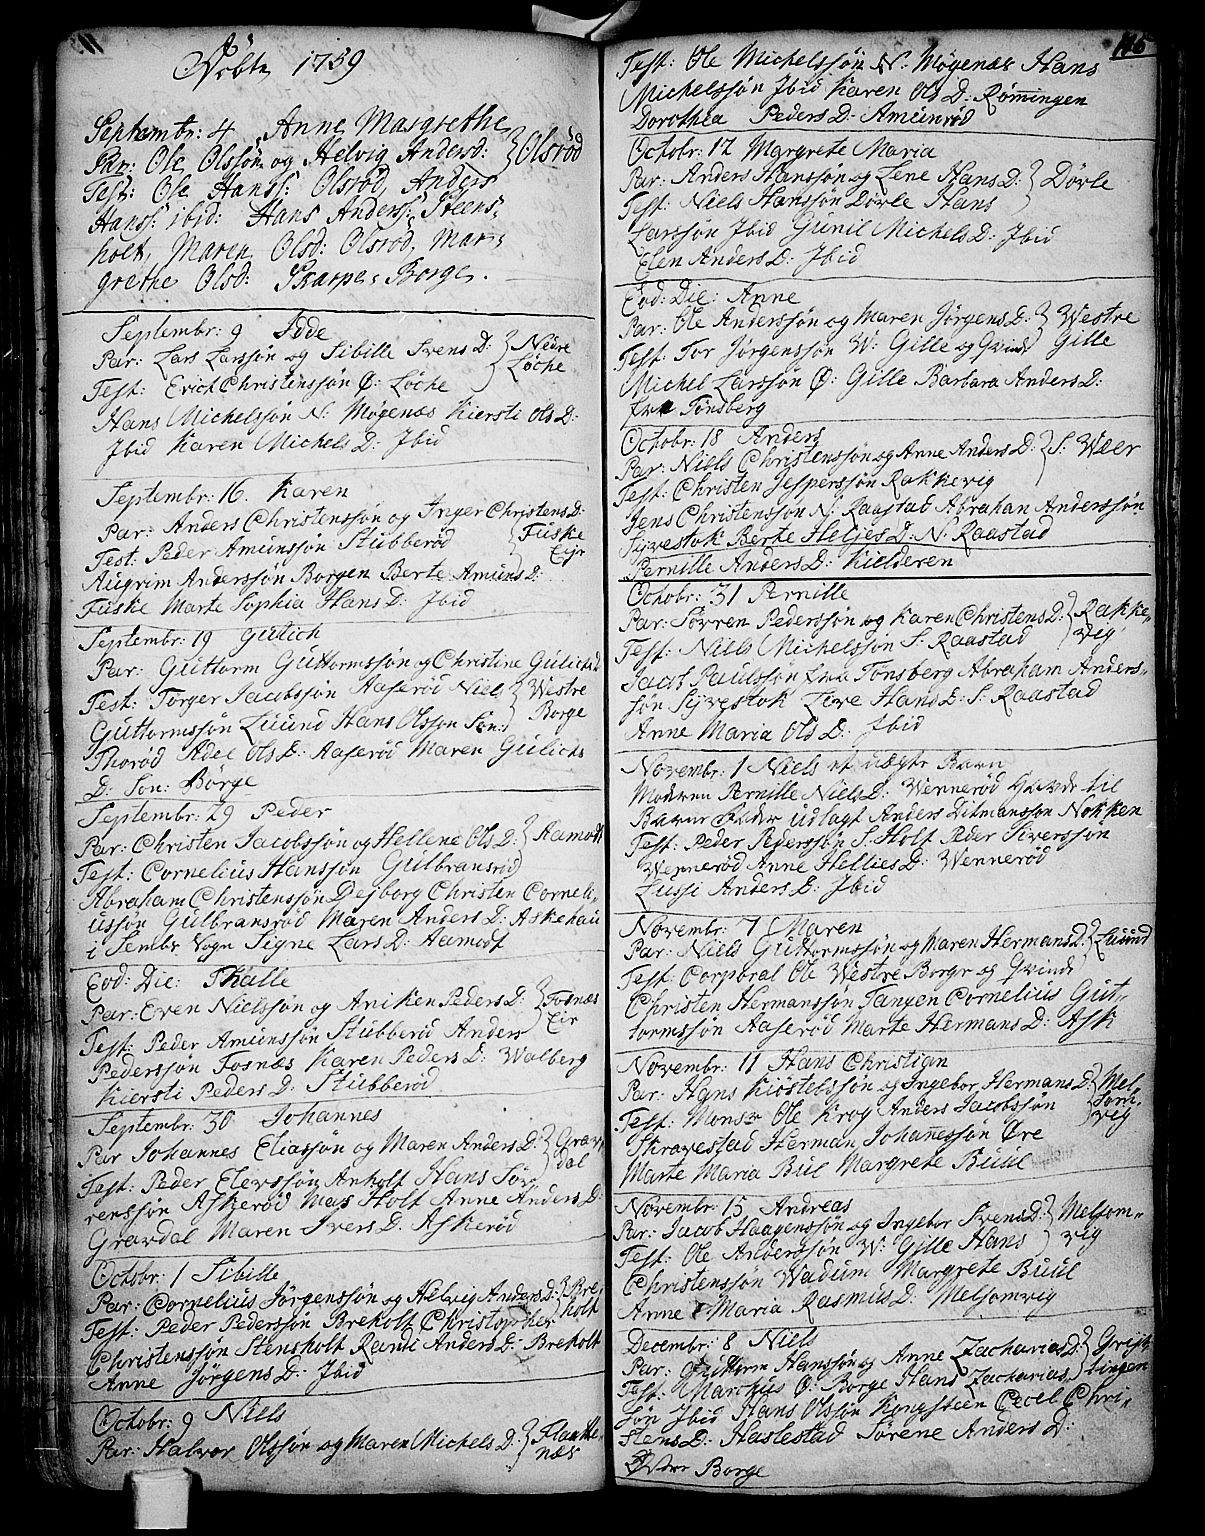 Döbte 1759
Septembr: 4 Anne Margrethe
Par: Ole Olssøn og Helvig Andersd: } Olsrød
Test: Ole Hanss: Olsrød, Anders
Hanss: ibid: Hans Anderss: Steens-
holt, Maren Olsd: Olsrød, Mar-
grethe Olsd: Skarpe-Borge.
Septembr: 9 Idde
Par: Lars Larssøn og Sibille Svens D: } Nedre
Test: Erich Christenssøn Ø: Løche } Løche
Hans Michelssøn N: Møgenæs Kiersti Ols D:
Ibid Karen Michels D: Ibid
Septembr: 16. Karen
Par: Anders Christenssøn og Inger Christens D:
Test: Peder Amunssøn Stubberød } Fuske
Augrim Anderssøn Borgen Berte Amunds D: Eje
Fuske Marte Sophia Hans D: Ibid
Septembr: 19 Gulich
Par: Guttorm Guttormssøn og Christine Gulichs D
Test: Torger Jacobssøn Aaserød Niels } Westre
Guttormssøn Luund Hans Olsson Søn: } Borge
Thorød Adel Ols D: Aaserød Maren Gulichs
D: Søn: Børge
Septembr: 29 Peder
Par: Christen Jacobssøn og Hellene Ols D: } Aamodt
Test: Cornelius Hanssøn Gulbransrød
Abraham Christenssøn Dejborg Christen Corneli-
ussøn Gulbransrød Maren Anders D: Askehau
i Sembs Sogn Signe Lars D: Aamodt
Eod: Die: Skalle
Par: Even Nielssøn og Aniken Peders D: } Fosnæs
Test: Peder Amunssøn Stubberød Anders } Eie
Pederssøn Fosnæs Karen Peders D: Walberg
Kiersti Peders D: Stubberød
Septembr: 30 Johannes
Par Johannes Eliassøn og Maren Anders D: } Grav-
Test: Peder Elevssøn Anholt Hans Sør- } dal
renssøn Askerød Mats Holt Anne Anders D:
Gravdal Maren Ivers D: Askerød
Octobr: 1 Sibille
Par: Cornelius Jørgenssøn og Helvig Anders D: } Bre-
Test: Peder Pederssøn Breholt Christopher } holt
Christenssøn Stensholt Randi Anders D: Breholt
Anne Jørgens D: Ibid
Octobr: 9 Niels
Par: Halvor Olssøn og Maren Michels D: } Flaatte-
næs
116
Test: Ole Michelssøn N: Møgenæs Hans
Michelssøn Ibid Karen Ols D: Rømingen
Dorothea Peders D: Amunrød
Octobr: 17 Margrete Maria
Par: Anders Hanssøn og Lene Hans D: } Dørle
Test: Niels Hanssøn Dørle Hans
Larssøn Ibid Gunil Michels D: Ibid
Elen Anders D: Ibid
Eod: Die: Anne
Par: Ole Anderssøn og Maren Jørgens D: } Westre
Test: Tor Jørgenssøn W: Gille og Qvinde } Gille
Michel Larssøn Ø: Gille Barbara Anders D:
fra Tønsberg
Octobr: 18 Anders
Par: Niels Christenssøn og Anne Anders D: } S: Wæer
Test: Christen Jesperssøn Rakkevig
Jens Christenssøn N: Raastad Abrahan Anderssøn
Syvestok Berte Helges D: N: Raastad
Pernille Anders D: Kielderen
Octobr: 31 Pernille
Par: Sørren Pederssøn og Karen Christens D: } Rakke-
Test: Niels Michelssøn S: Raastad } vig
Jacob Paulssøn fra Tønsberg Abraham Anders-
søn Syvestok Live Hans D: S: Raastad
Anne Maria Ols D: Ibid
Novembr: 1 Niels et uægte Barn
Moderen Pernille Niels D: Wennerød Havde til
Barne Fader udlagt Anders Ditmanssøn Nokken
Test: Peder Pederssøn S: Holt Peder Siverssøn
Wennerød Anne Hellies D: Wennerød
Lussi Anders D: Ibid
Novembr: 7 Maren
Par: Niels Guttormssøn og Maren Hermans D: } Luund
Test: Corporal Ole Westre Borge og Qvinde
Christen Hermanssøn Tangen Cornelius Gut-
tormssøn Aaserød Marte Hermans D: Ask
Novembr: 11 Hans Christian
Par: Hans Kiøstelssøn og Ingebor Hermans D: } Mel-
Test: Monsr Ole Krog Anders Jacobssøn } som-
Skravestad Herman Johanessøn Øre vig
Marte Maria Bul Margrete Buul
Novembr: 15 Andreas
Par: Jacob Haagenssøn og Ingebor Svens D: } Melsom-
Test: Ole Anderssøn W: Gille Hans } vig
Christenssøn Wadum Margrete Buul
Anne Maria Rasmus D: Melsomvig
Decembr: 8 Niels
Par: Guttorm Hanssøn og Anne Zacharias D: }
Test: Marchus Ø: Borge Hans Zacharias-
søn Ibid Hans Olssøn Kongsteen Cecel Chri-
stens D: Haslestad Sørene Anders D:
Borge